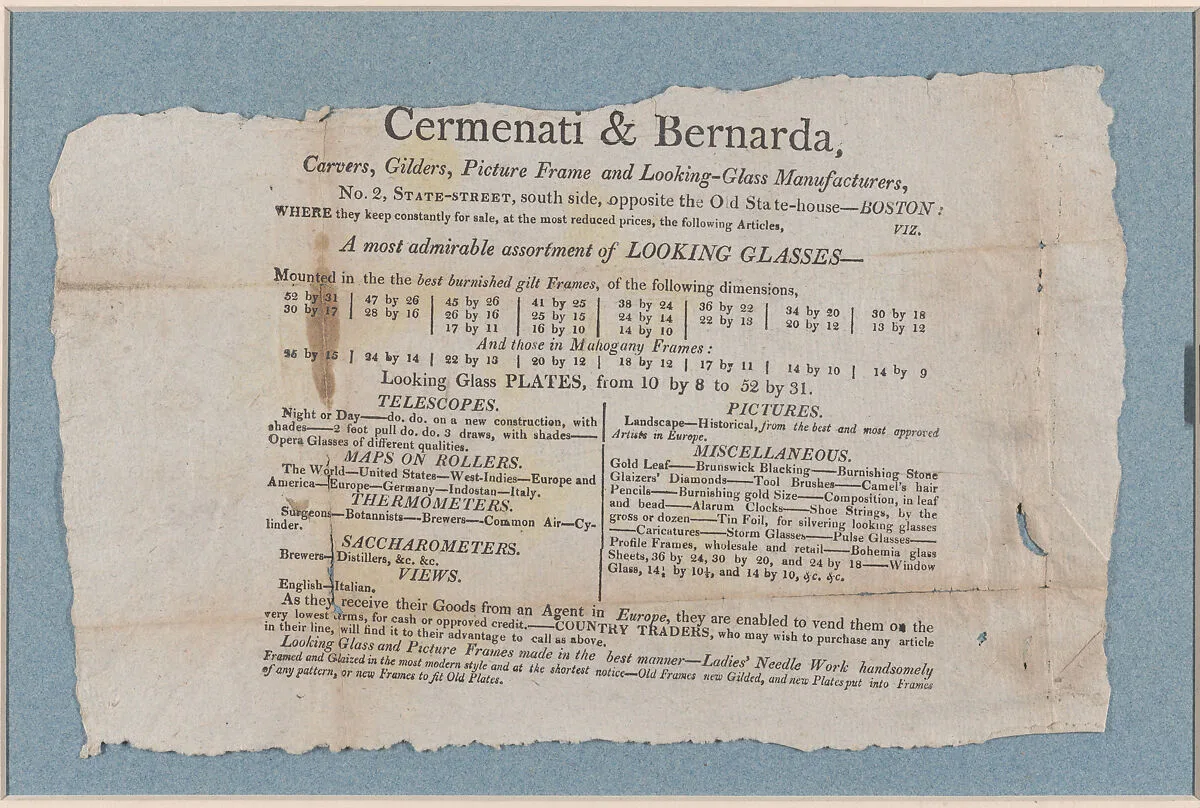 Cermenati & Bernarda,
Carvers, Gilders, Picture Frame and Looking-Glass Manufacturers,
No. 2, STATE-STREET, south side, opposite the Old State-house—BOSTON:
WHERE they keep constantly for sale, at the most reduced prices, the following Articles, VIZ.
A most admirable assortment of LOOKING GLASSES—
Mounted in the the best burnished gilt Frames, of the following dimensions,
52 by 31 | 47 by 26 | 45 by 26 | 41 by 25 | 38 by 24 | 36 by 22 | 34 by 20 | 30 by 18
30 by 17 | 28 by 16 | 26 by 16 | 25 by 15 | 24 by 14 | 22 by 13 | 20 by 12 | 13 by 12
17 by 11 | 16 by 10 | 14 by 10
And those in Mahogany Frames:
25 by 15 | 24 by 14 | 22 by 13 | 20 by 12 | 18 by 12 | 17 by 11 | 14 by 10 | 14 by 9
Looking Glass PLATES, from 10 by 8 to 52 by 31.
TELESCOPES.
Night or Day—do. do. on a new construction, with
shades—2 foot pull do. do. 3 draws, with shades—
Opera Glasses of different qualities.
MAPS ON ROLLERS.
The World—United States—West-Indies—Europe and
America—Europe—Germany—Indostan—Italy.
THERMOMETERS.
Surgeons—Botannists—Brewers—Common Air—Cy-
linder.
SACCHAROMETERS.
Brewers—Distillers, &c. &c.
VIEWS.
English—Italian.
PICTURES.
Landscape—Historical, from the best and most approved
Artists in Europe.
MISCELLANEOUS.
Gold Leaf—Brunswick Blacking—Burnishing Stone
Glaizers' Diamonds—Tool Brushes—Camel's hair
Pencils—Burnishing gold Size—Composition, in leaf
and bead—Alarum Clocks—Shoe Strings, by the
gross or dozen—Tin Foil, for silvering looking glasses
—Caricatures—Storm Glasses—Pulse Glasses—
Profile Frames, wholesale and retail—Bohemia glass
Sheets, 36 by 24, 30 by 20, and 24 by 18—Window
Glass, 14½ by 10½, and 14 by 10, &c. &c.
As they receive their Goods from an Agent in Europe, they are enabled to vend them on the
very lowest terms, for cash or opproved credit.—COUNTRY TRADERS, who may wish to purchase any article
in their line, will find it to their advantage to call as above.
Looking Glass and Picture Frames made in the best manner—Ladies' Needle Work handsomely
Framed and Glaized in the most modern style and at the shortest notice—Old Frames new Gilded, and new Plates put into Frames
of any pattern, or new Frames to fit Old Plates.